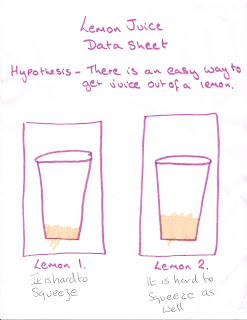 Lemon Juice
Data Sheet
Hypothesis - There is an easy way to
get juice out of a lemon.
Lemon 1.
It is hard to
Squeeze
Lemon 2.
It is hard to
Squeeze as
Well